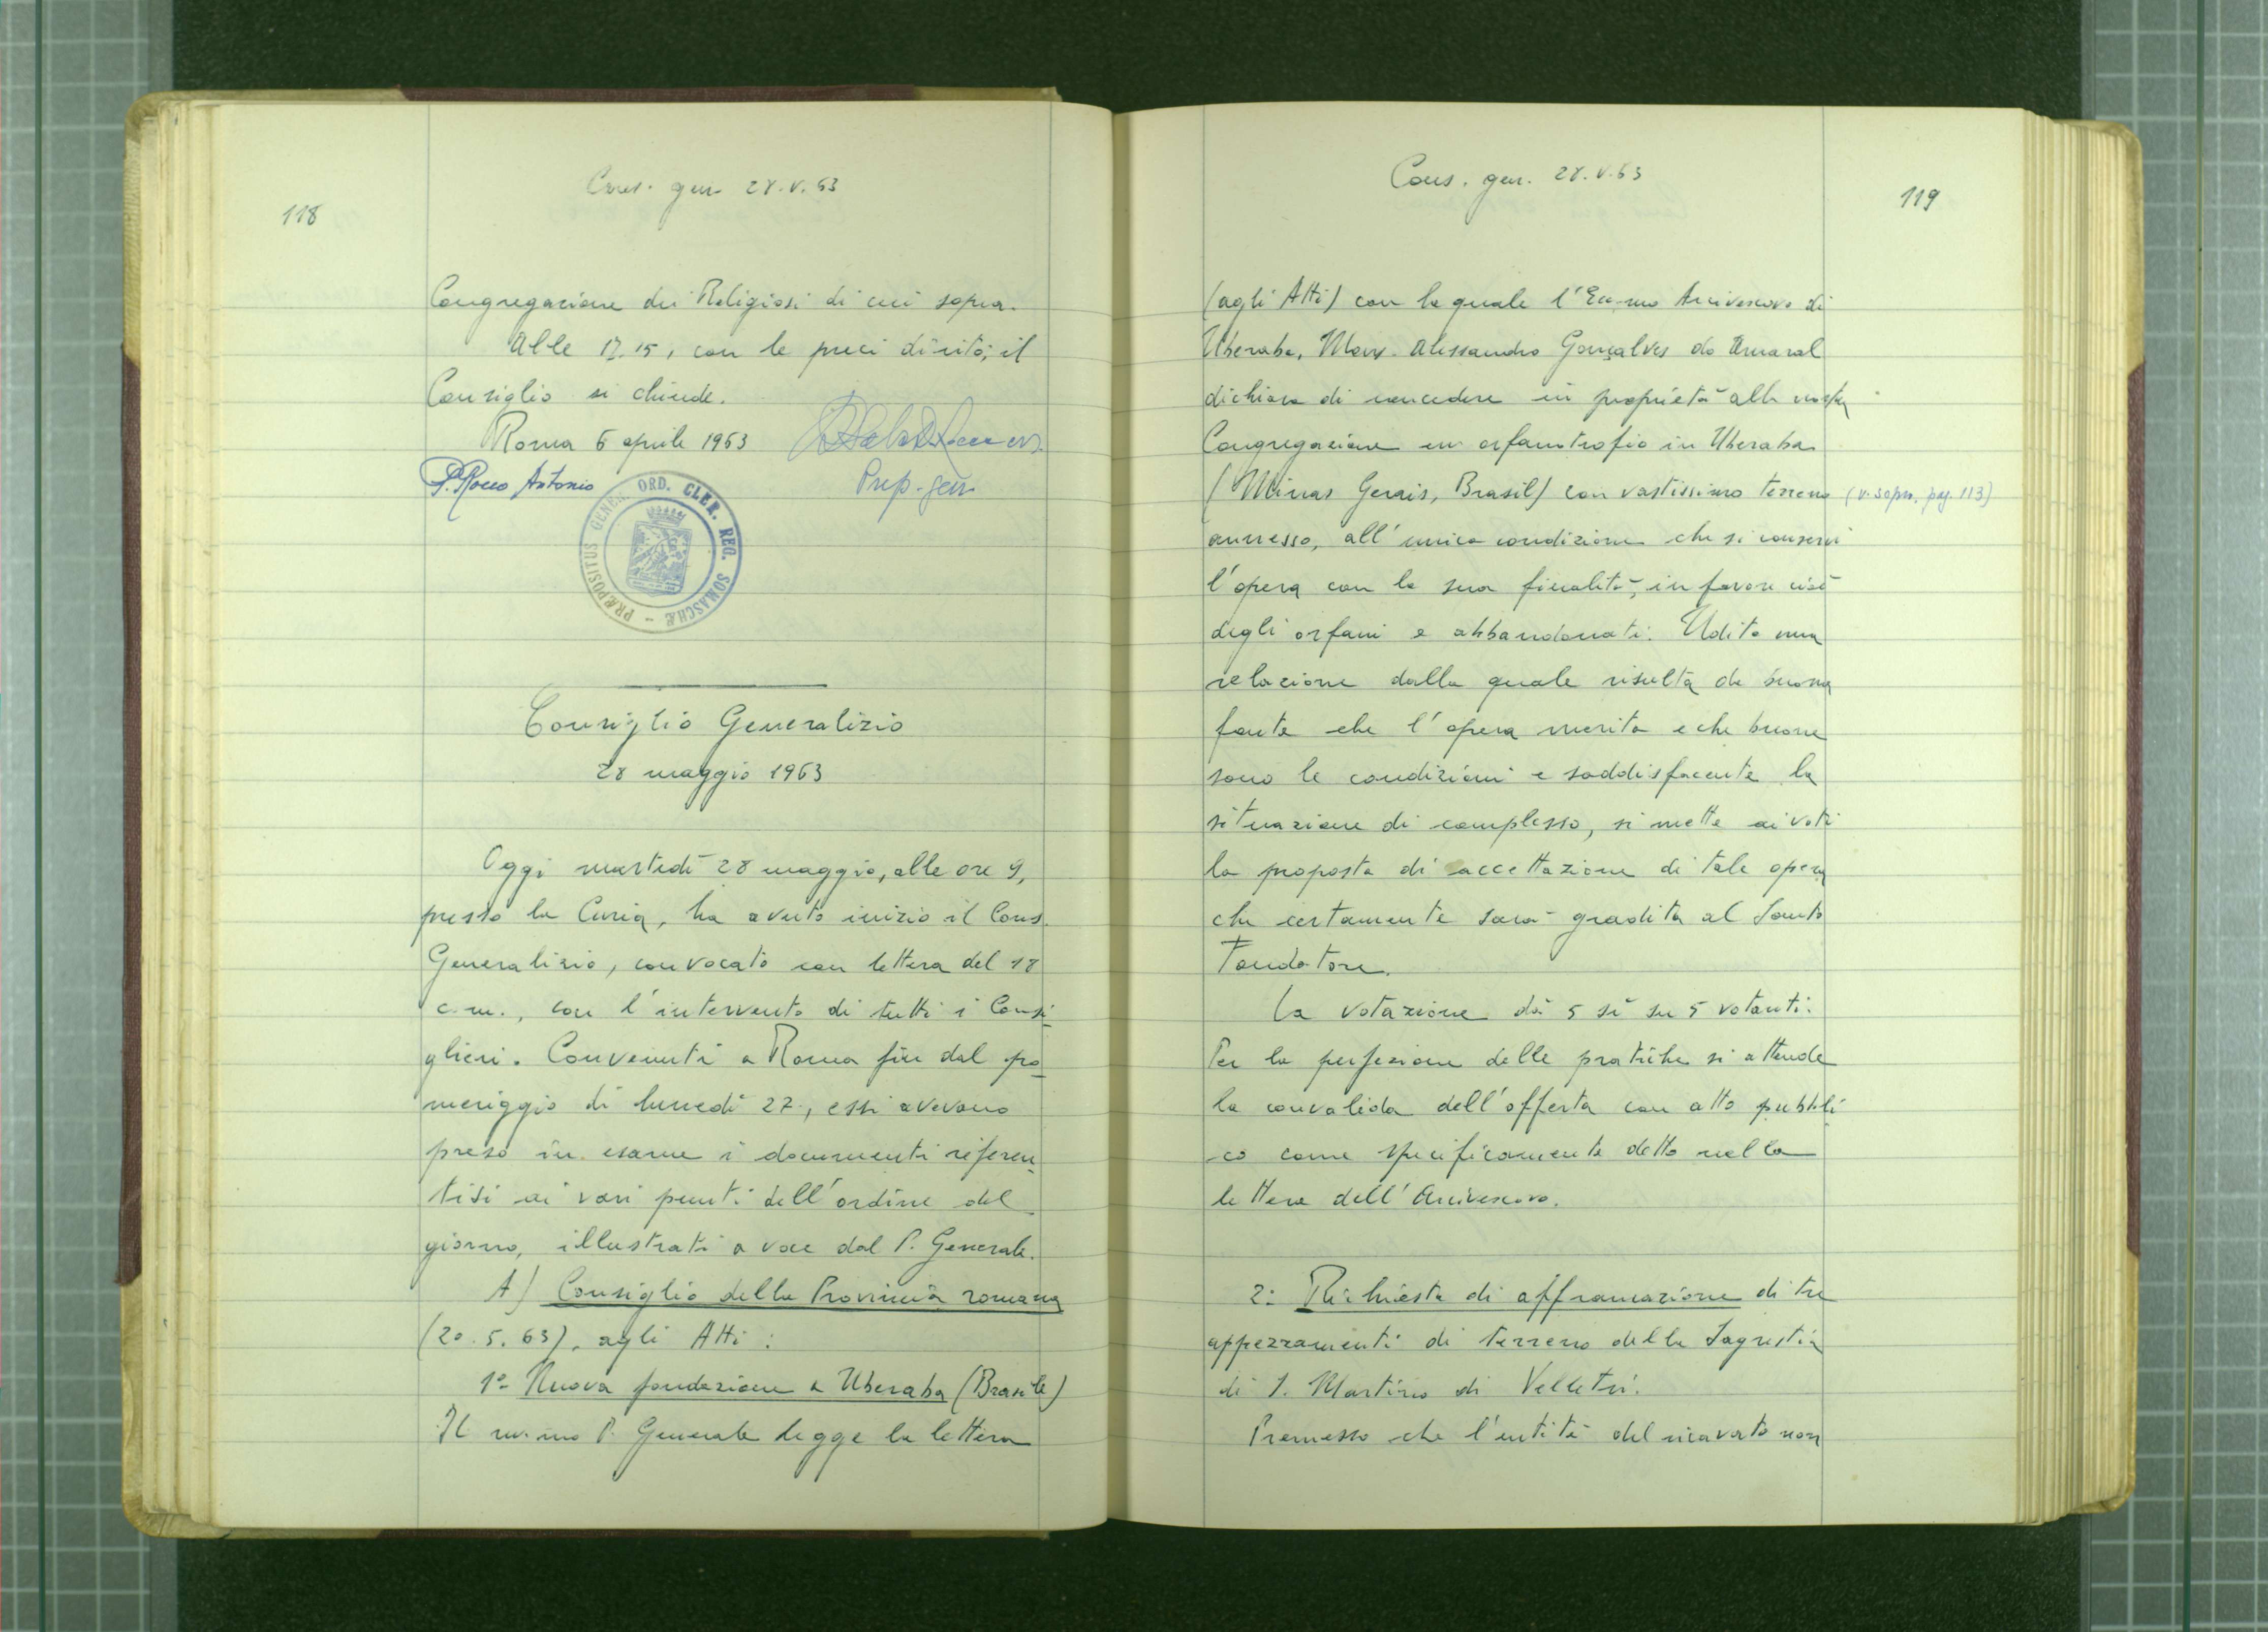 118
Cons. gen. 28.V.63
Congregazione dei Religiosi di cui sopra.
Alle 17.15, con le preci di rito, il
Consiglio si chiude.
Roma 6 aprile 1963
P. Rocco Antonio
Prep. gen.
PRÆPOSITUS GENER. ORD. CLER. REG. SOMASCHÆ -
Consiglio Generalizio
28 maggio 1963
Oggi martedì 28 maggio, alle ore 9,
presso la Curia, ha avuto inizio il Cons.
Generalizio, convocato con lettera del 18
c.m., con l'intervento di tutti i Consi-
glieri. Convenuti a Roma fin dal po-
meriggio di lunedì 27, essi avevano
preso in esame i documenti riferen-
tisi ai vari punti dell'ordine del
giorno, illustrati a voce dal P. Generale.
A) Consiglio della Provincia romana
(20.5.63), agli Atti:
1º Nuova fondazione a Uberaba (Brasile)
Il rev.mo P. Generale legge la lettera
Cons. gen. 28.V.63
119
(agli Atti) con la quale l'Ecc.mo Arcivescovo di
Uberaba, Mons. Alessandro Gonçalves do Amaral
dichiara di concedere in proprietà alla nostra
Congregazione un orfanotrofio in Uberaba
(Minas Gerais, Brasil) con vastissimo terreno (v. sopra, pag. 113)
annesso, all'unica condizione che si conservi
l'opera con la sua finalità, in favore cioè
degli orfani e abbandonati. Udita una
relazione dalla quale risulta da buona
fonte che l'opera merita e che buone
sono le condizioni e soddisfacente la
situazione di complesso, si mette ai voti
la proposta di accettazione di tale opera
che certamente sarà gradita al Santo
Fondatore.
La votazione dà 5 sì su 5 votanti.
Per la perfezione delle pratiche si attende
la convalida dell'offerta con atto pubbli-
co come specificamente detto nella
lettera dell'Arcivescovo.
2: Richiesta di affrancazione di tre
appezzamenti di terreno della Sagrestia
di S. Martino di Velletri.
Premesso che l'entità del ricavato non